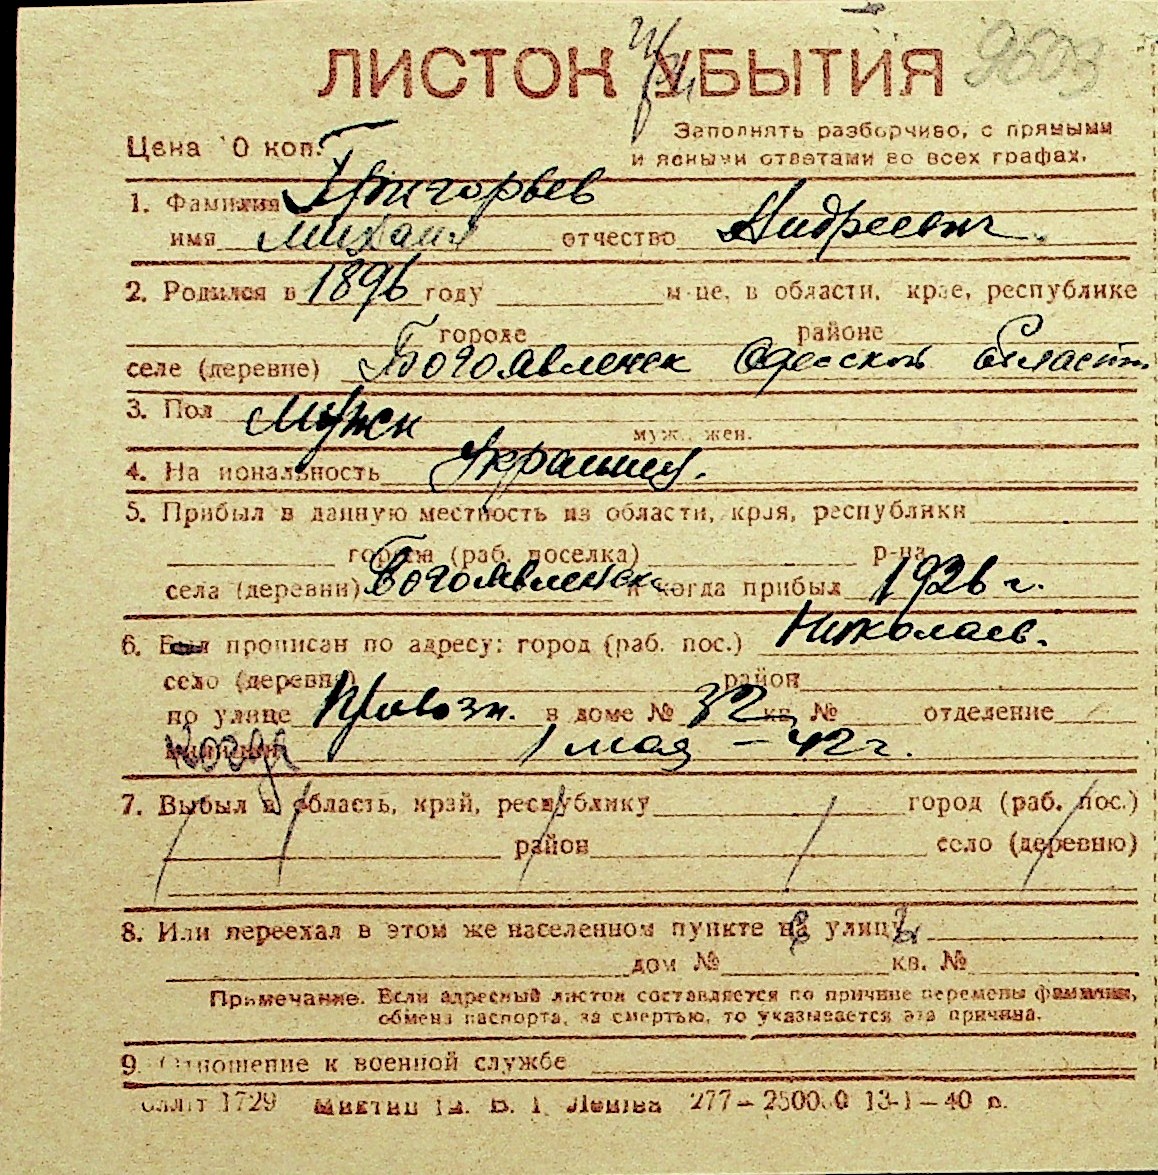 ЛИСТОК УБЫТИЯ 9603
Цена 10 коп.
Заполнять разборчиво, с прямыми
и ясными ответами во всех графах.
1. Фамилия Григорьев
имя Михаил отчество Андреевич
2. Родился в 1896 году м-це, в области, крае, республике
городе районе
селе (деревне) Богоявленск Одесской области
3. Пол Мужск
муж., жен.
4. Национальность Украинец.
5. Прибыл в данную местность из области, края, республики
города (раб. поселка) р-на
села (деревни) Богоявленск и когда прибыл 1926 г.
6. Был прописан по адресу: город (раб. пос.) Николаев.
село (деревня) район
по улице Провозн. в доме № 32 кв. № отделение
Когда 1 мая – 42 г.
7. Выбыл в область, край, республику город (раб. пос.)
район село (деревню)
8. Или переехал в этом же населенном пункте на улицу
дом № кв. №
Примечание. Если адресный листок составляется по причине перемены фамилии,
обмена паспорта, за смертью, то указывается эта причина.
9. Отношение к военной службе
1729 Ленина 277 – 13-1-40 р.